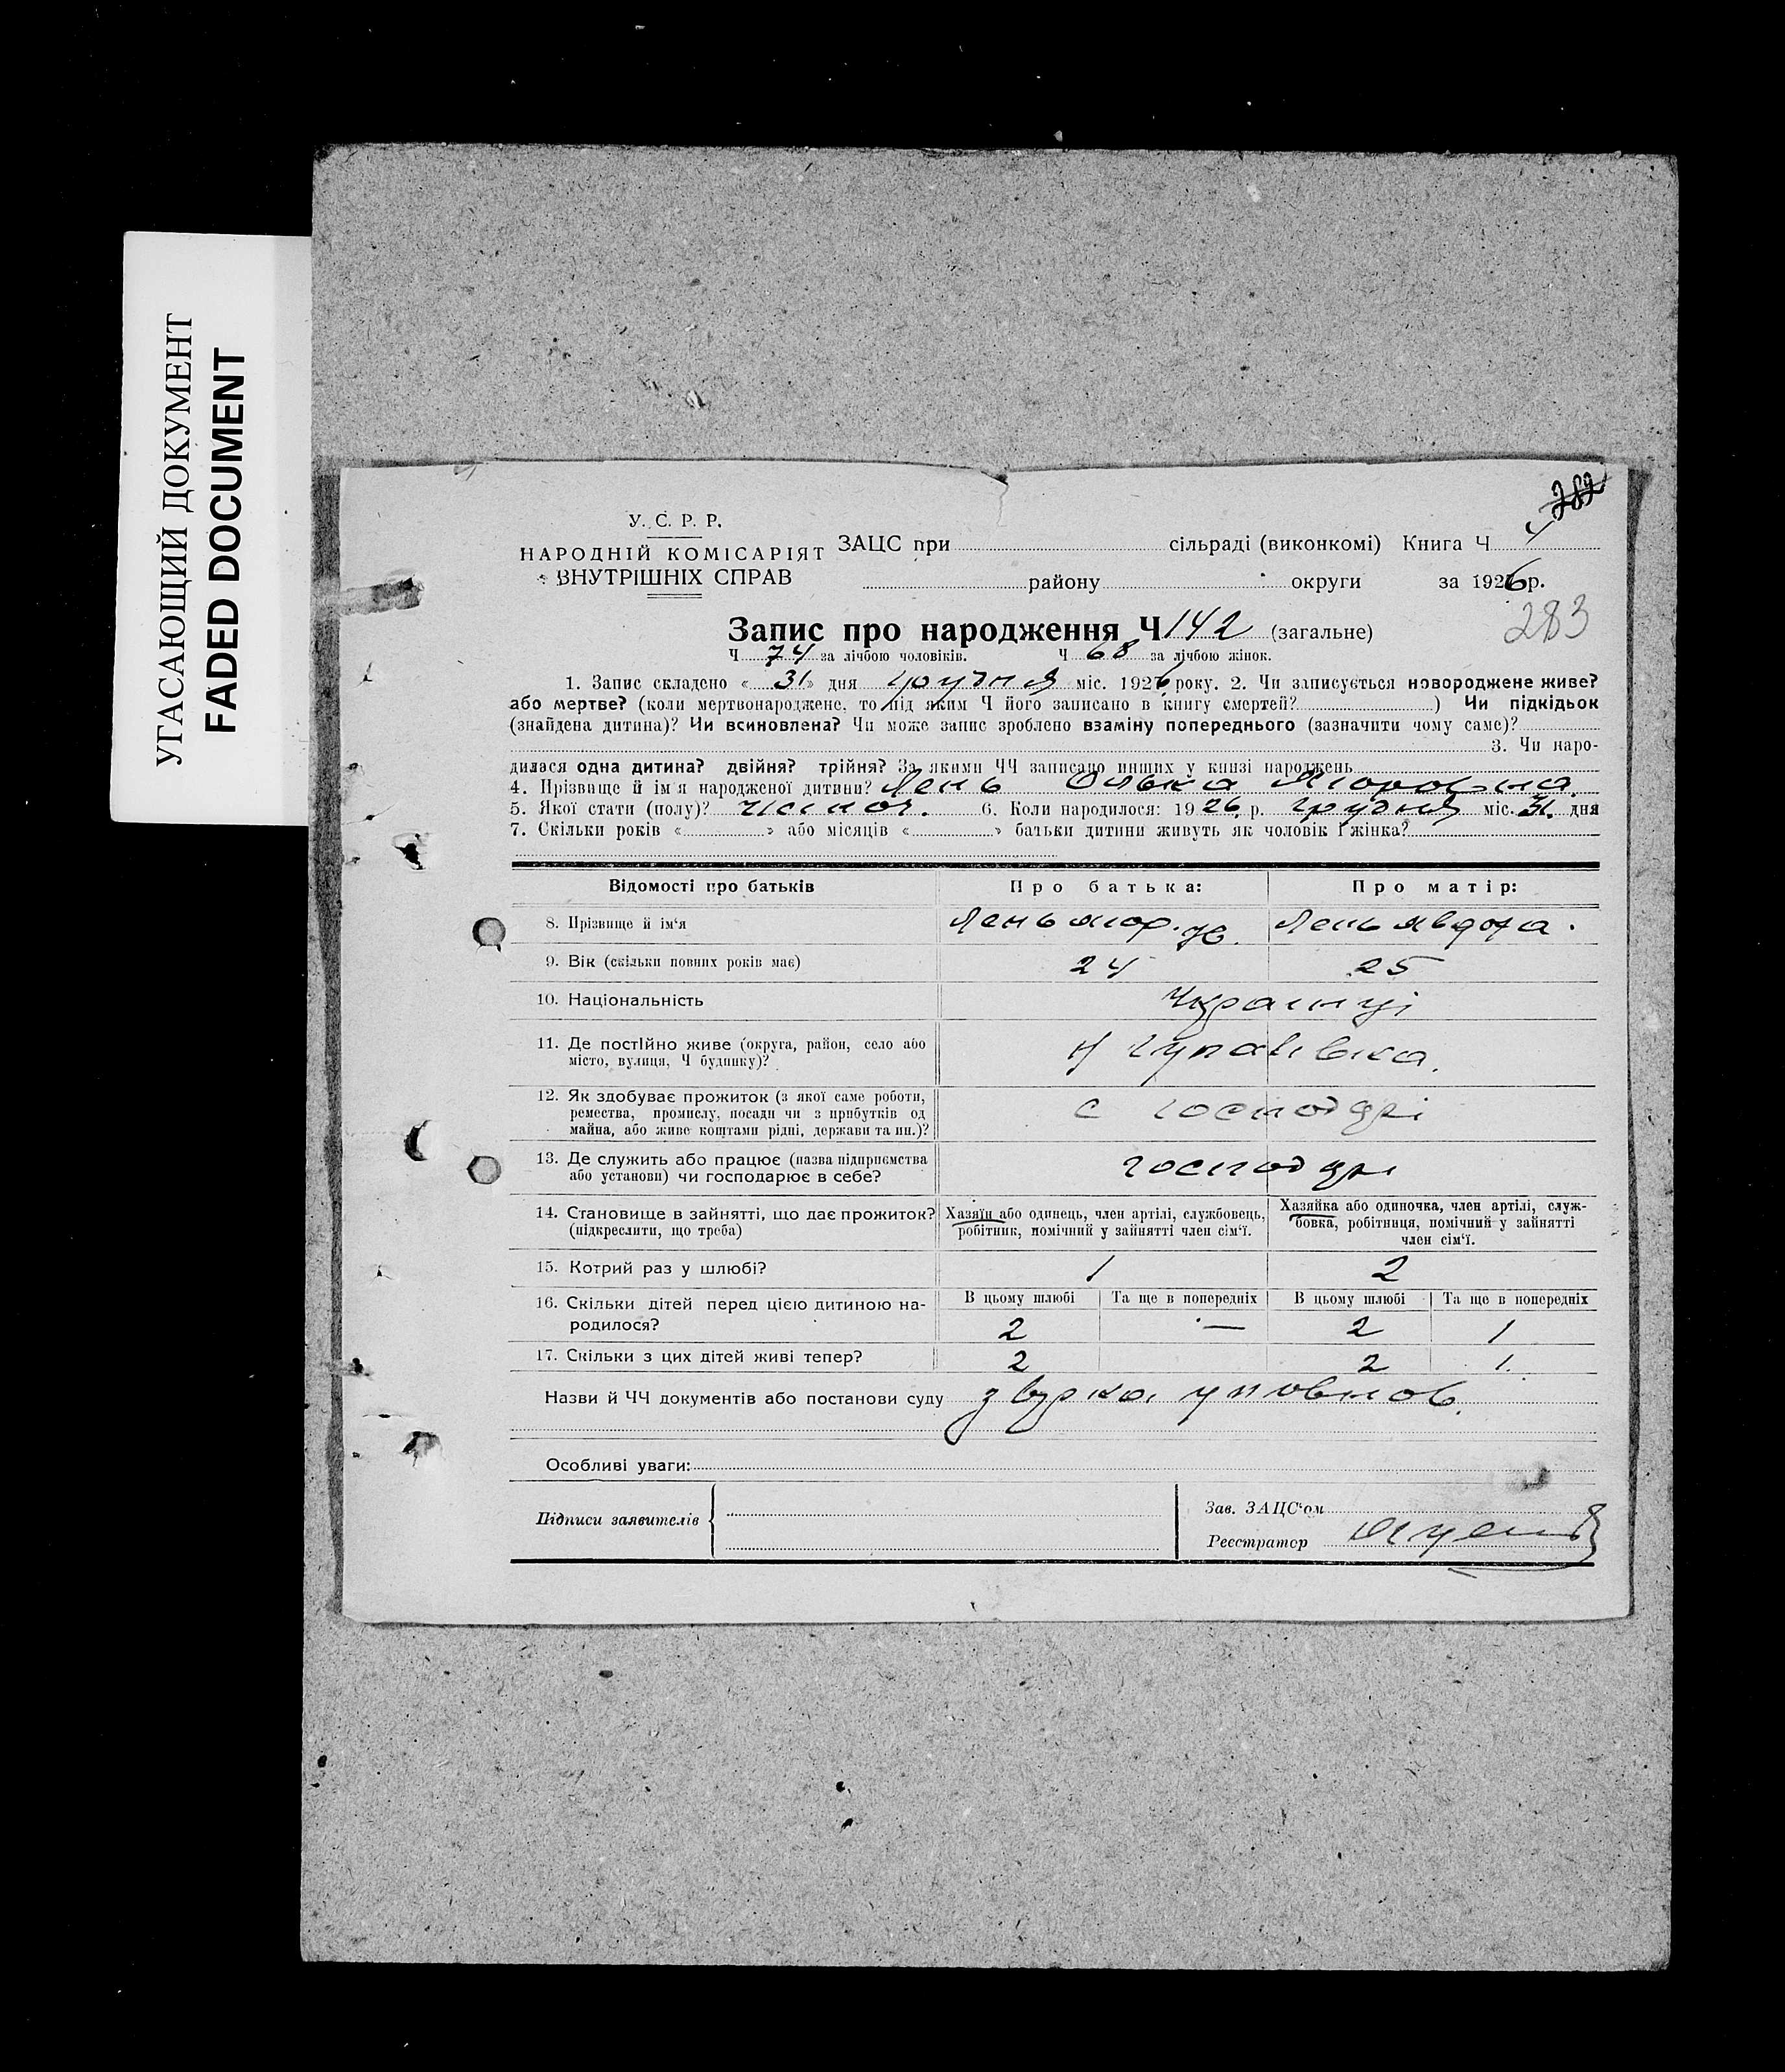 УГАСАЮЩИЙ ДОКУМЕНТ
FADED DOCUMENT
282
У. С. Р. Р.
НАРОДНІЙ КОМІСАРІЯТ
ВНУТРІШНІХ СПРАВ
ЗАЦС при сільраді (виконкомі) Книга Ч
району округи за 1926 р.
283
Запис про народження Ч 142 (загальне)
Ч 74 за лічбою чоловіків. Ч 68 за лічбою жінок.
1. Запис складено « 31 » дня грудня міс. 1926 року. 2. Чи записується новороджене живе?
або мертве? (коли мертвонароджене, то під яким Ч його записано в книгу смертей? ) Чи підкідьок
(знайдена дитина)? Чи всиновлена? Чи може запис зроблено взаміну попереднього (зазначити чому саме)?
3. Чи наро-
дилася одна дитина? двійня? трійня? За якими ЧЧ записано инших у книзі народжень
4. Прізвище й ім'я народженої дитини? Лень Олька
5. Якої стати (полу)? жіноч. 6. Коли народилося: 1926 р. грудня міс. 31. дня
7. Скільки років « » або місяців « » батьки дитини живуть як чоловік і жінка?
Відомості про батьків Про батька: Про матір:
8. Прізвище й ім'я Лень Лень Явдоха.
9. Вік (скільки повних років має) 24 25
10. Національність Українці
11. Де постійно живе (округа, район, село або
місто, вулиця, Ч будинку)?
12. Як здобуває прожиток (з якої саме роботи,
ремества, промислу, посади чи з прибутків од
майна, або живе коштами рідні, держави та ин.)?
с господарі
13. Де служить або працює (назва підприємства
або установи) чи господарює в себе?
господарі
14. Становище в зайнятті, що дає прожиток?
(підкреслити, що треба)
Хазяїн або одинець, член артілі, службовець,
робітник, помічний у зайнятті член сім'ї.
Хазяйка або одиночка, член артілі, служ-
бовка, робітниця, помічний у зайнятті
член сім'ї.
15. Котрий раз у шлюбі? 1 2
16. Скільки дітей перед цією дитиною на-
родилося?
В цьому шлюбі Та ще в попередніх В цьому шлюбі Та ще в попередніх
2 — 2 1
17. Скільки з цих дітей живі тепер? 2 2 1.
Назви й ЧЧ документів або постанови суду
Особливі уваги:
Підписи заявителів
Зав. ЗАЦС'ом
Реєстратор